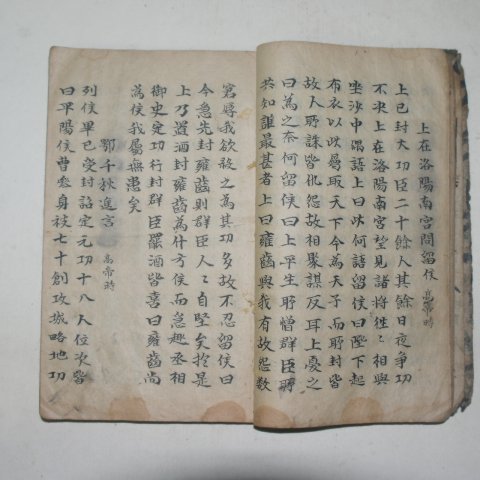 上在洛陽南宮問留侯 高帝時
上已封大功臣二十餘人其餘日夜爭功
不决上在洛陽南宮望見諸將徃〻相與
坐沙中隅語上曰此何語留侯曰陛下起
布衣以此屬取天下今為天子而所封皆
故人所誅皆仇怨故相聚謀反耳上憂之
曰為之奈何留侯曰上平生所憎群臣所
共知誰最甚者上曰雍齒與我有故怨數
窘辱我欲殺之為其功多故不忍留侯曰
今急先封雍齒則群臣人〻自堅矣於是
上乃置酒封雍齒為什方侯而急趣丞相
御史定功行封群臣罷酒皆喜曰雍齒尚
為侯我屬無患矣
鄂千秋進言 高帝時
列侯畢已受封詔定元功十八人位次皆
曰平陽侯曹參身被七十創攻城略地功